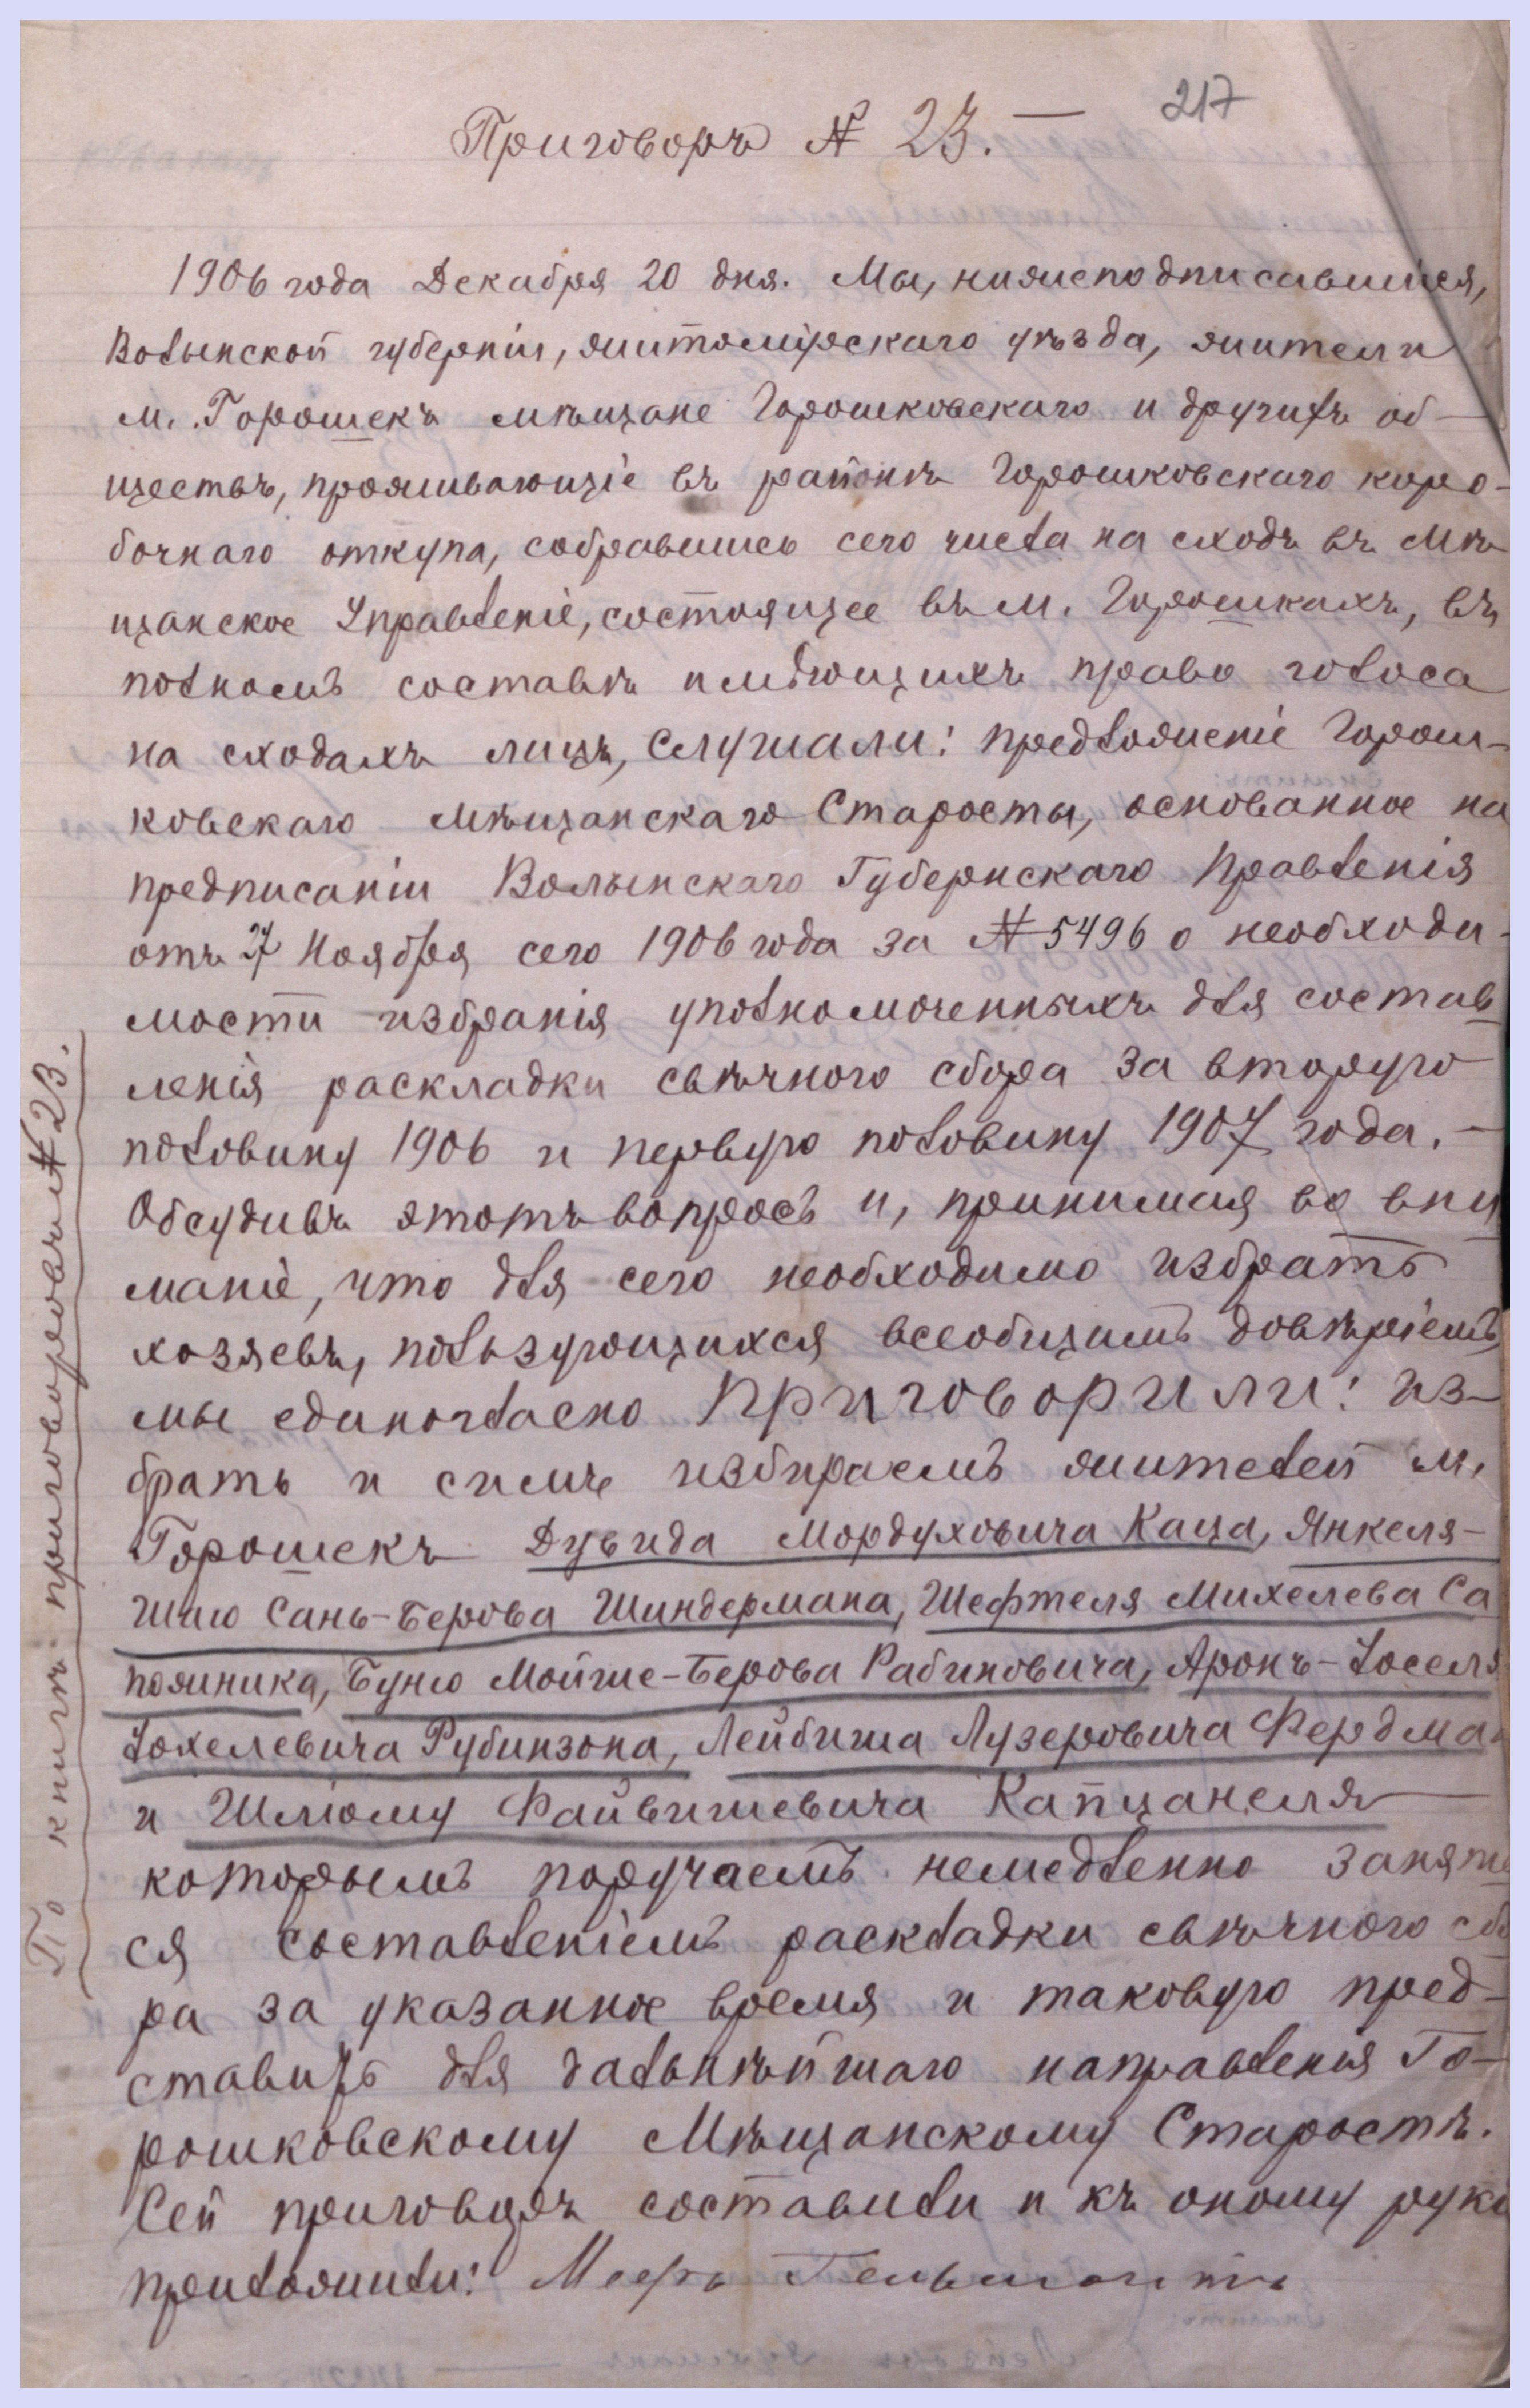 217
Приговоръ № 23. —
1906 года Декабря 20 дня. Мы, нижеподписавшіеся,
Волынской губерніи, житомірскаго уѣзда, жители
м. Горошекъ мѣщане Горошковскаго и другихъ об-
ществъ, проживающіе въ раіонѣ Горошковскаго коро-
бочнаго откупа, собравшись сего числа на сходъ въ Мѣ-
щанское Управленіе, состоящее въ м. Горошкахъ, въ
полномъ составѣ имѣющихъ право голоса
на сходахъ лицъ, слушали: предложеніе Горош-
ковскаго мѣщанскаго Старосты, основанное на
предписаніи Волынскаго Губернскаго Правленія
отъ 27 Ноября сего 1906 года за № 5496 о необходи-
мости избранія уполномоченныхъ для состав
ленія раскладки свѣчного сбора за вторую
половину 1906 и первую половину 1907 года. —
Обсудивъ этотъ вопросъ и, принимая во вни
маніе, что для сего необходимо избрать
хозяевъ, пользующихся всеобщимъ довѣріемъ,
мы единогласно приговорили: из-
брать и симъ избираемъ жителей м.
Горошекъ Дувида Мордуховича Каца, Янкеля-
Шаю Сань-Берова Шиндермана, Шефтеля Михелева Са
пожника, Буню Мойше-Берова Рабиновича, Аронъ-Іоселя
Іохелевича Рубинзона, Лейбиша Лузеровича Фердман
и Шлiому Файвишевича Капцанеля
которымъ поручаемъ немедленно занять
ся составленіемъ раскладки свѣчного сбо
ра за указанное время и таковую пред-
ставить для дальнѣйшаго направленія Го-
рошковскому Мѣщанскому Старостѣ.
Сей приговоръ составили и къ оному руки
приложили: Мееръ
По книгѣ приговоровъ № 23.